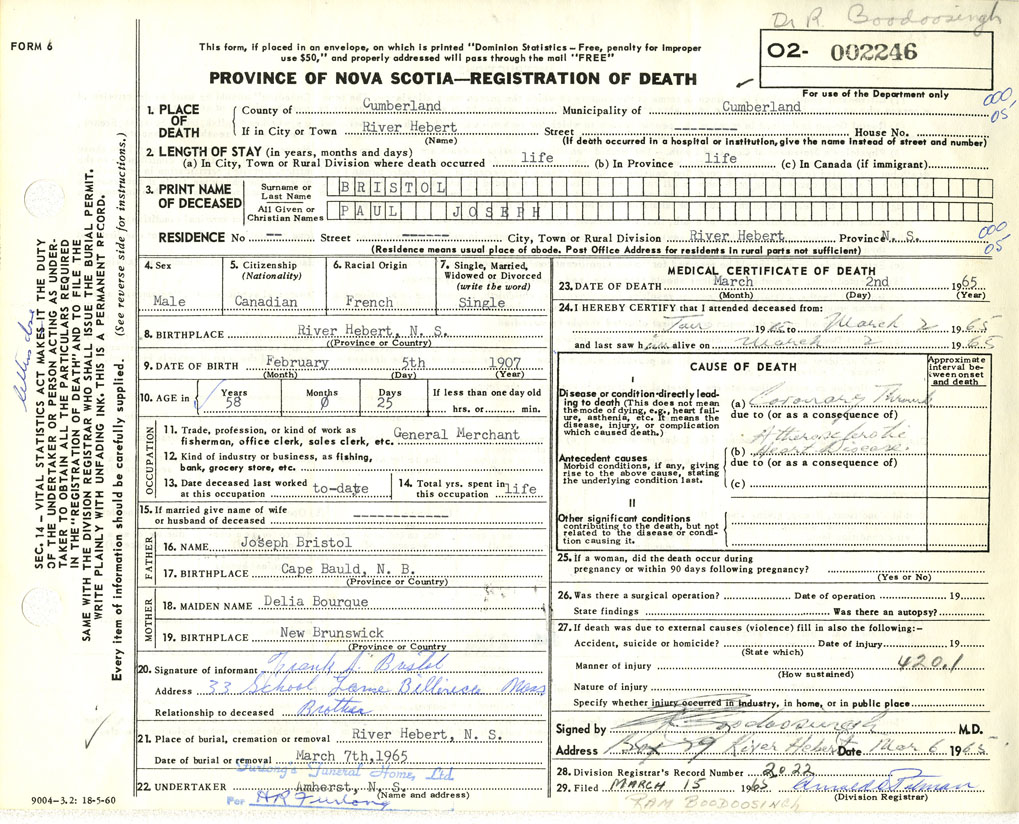 Dr R. Boodoosingh
FORM 6
This form, if placed in an envelope, on which is printed "Dominion Statistics – Free, penalty for improper
use $50," and properly addressed will pass through the mail "FREE"
O2- 002246
PROVINCE OF NOVA SCOTIA—REGISTRATION OF DEATH
For use of the Department only
1. PLACE OF DEATH
County of Cumberland Municipality of Cumberland
000
05,
If in City or Town River Hebert Street -------- House No.
(Name) (If death occurred in a hospital or institution, give the name instead of street and number)
2. LENGTH OF STAY (in years, months and days)
(a) In City, Town or Rural Division where death occurred life (b) In Province life (c) In Canada (if immigrant)
3. PRINT NAME OF DECEASED
Surname or Last Name BRISTOL
All Given or Christian Names PAUL JOSEPH
RESIDENCE No -- Street ------ City, Town or Rural Division River Hebert Province N. S.
000
05
(Residence means usual place of abode. Post Office Address for residents in rural parts not sufficient)
4. Sex
Male
5. Citizenship
(Nationality)
Canadian
6. Racial Origin
French
7. Single, Married,
Widowed or Divorced
(write the word)
Single
8. BIRTHPLACE River Hebert, N. S.
((Province or Country)
9. DATE OF BIRTH February 5th 1907
(Month) (Day) (Year)
10. AGE in Years 58 Months 0 Days 25 If less than one day old
hrs. or min.
OCCUPATION
11. Trade, profession, or kind of work as
fisherman, office clerk, sales clerk, etc. General Merchant
12. Kind of industry or business, as fishing,
bank, grocery store, etc.
13. Date deceased last worked
at this occupation to-date
14. Total yrs. spent in
this occupation life
15. If married give name of wife
or husband of deceased -------------
FATHER
16. NAME Joseph Bristol
17. BIRTHPLACE Cape Bauld, N. B.
(Province or Country)
MOTHER
18. MAIDEN NAME Delia Bourque
19. BIRTHPLACE New Brunswick
(Province or Country)
20. Signature of informant Frank J. Bristol
Address 33 School Lane Billerica Mass
Relationship to deceased Brother
21. Place of burial, cremation or removal River Hebert, N. S.
Date of burial or removal March 7th,1965
Furlong's Funeral Home, Ltd
22. UNDERTAKER Amherst, N. S.
(Name and address)
For H R Furlong
9004-3.2: 18-5-60
MEDICAL CERTIFICATE OF DEATH
23. DATE OF DEATH March 2nd 1965
(Month) (Day) (Year)
24. I HEREBY CERTIFY that I attended deceased from:
19 to March 2 1965
and last saw h alive on March 2 1965
CAUSE OF DEATH
Approximate
interval between onset
and death
I
Disease or condition directly leading to death (This does not mean
the mode of dying, e.g., heart failure, asthenia, etc. It means the
disease, injury, or complication
which caused death.)
(a) Coronary
due to (or as a consequence of)
Antecedent causes
Morbid conditions, if any, giving
rise to the above cause, stating
the underlying condition last.
(b) Heart Disease
due to (or as a consequence of)
(c)
II
Other significant conditions
contributing to the death, but not
related to the disease or condition causing it.
25. If a woman, did the death occur during
pregnancy or within 90 days following pregnancy?
(Yes or No)
26. Was there a surgical operation? Date of operation 19
State findings Was there an autopsy?
27. If death was due to external causes (violence) fill in also the following:–
Accident, suicide or homicide? Date of injury 19
(State which)
Manner of injury 420.1
(How sustained)
Nature of injury
Specify whether injury occurred in industry, in home, or in public place
Signed by R Boodoosingh M.D.
Address Box 79 River Hebert Date Mar 6 1965
28. Division Registrar's Record Number 2022
29. Filed MARCH 15 1965
(Division Registrar)
RAM BOODOOSINGH
SEC. 14 – VITAL STATISTICS ACT MAKES IT THE DUTY
OF THE UNDERTAKER OR PERSON ACTING AS UNDERTAKER TO OBTAIN ALL THE PARTICULARS REQUIRED
IN THE "REGISTRATION OF DEATH" AND TO FILE THE
SAME WITH THE DIVISION REGISTRAR WHO SHALL ISSUE THE BURIAL PERMIT.
WRITE PLAINLY WITH UNFADING INK. THIS IS A PERMANENT RECORD.
Every item of information should be carefully supplied. (See reverse side for instructions.)